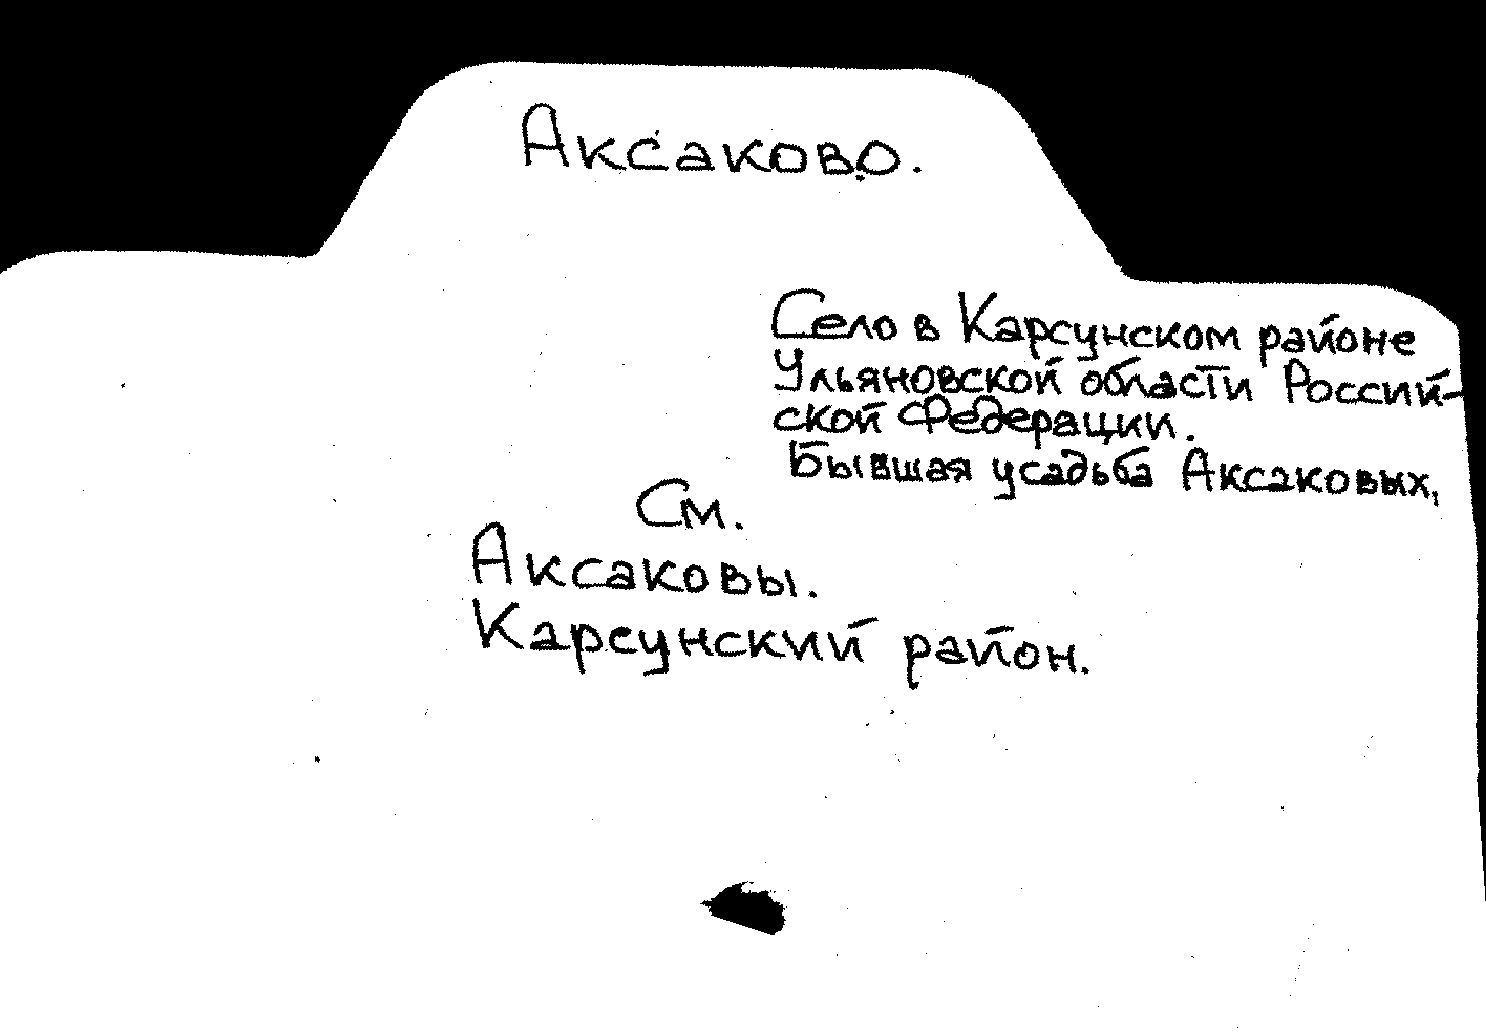 Аксаково.
Село в Карсунском районе
Ульяновской области Россий-
ской Федерации.
Бывшая усадьба Аксаковых,
См.
Аксаковы.
Карсунский район.